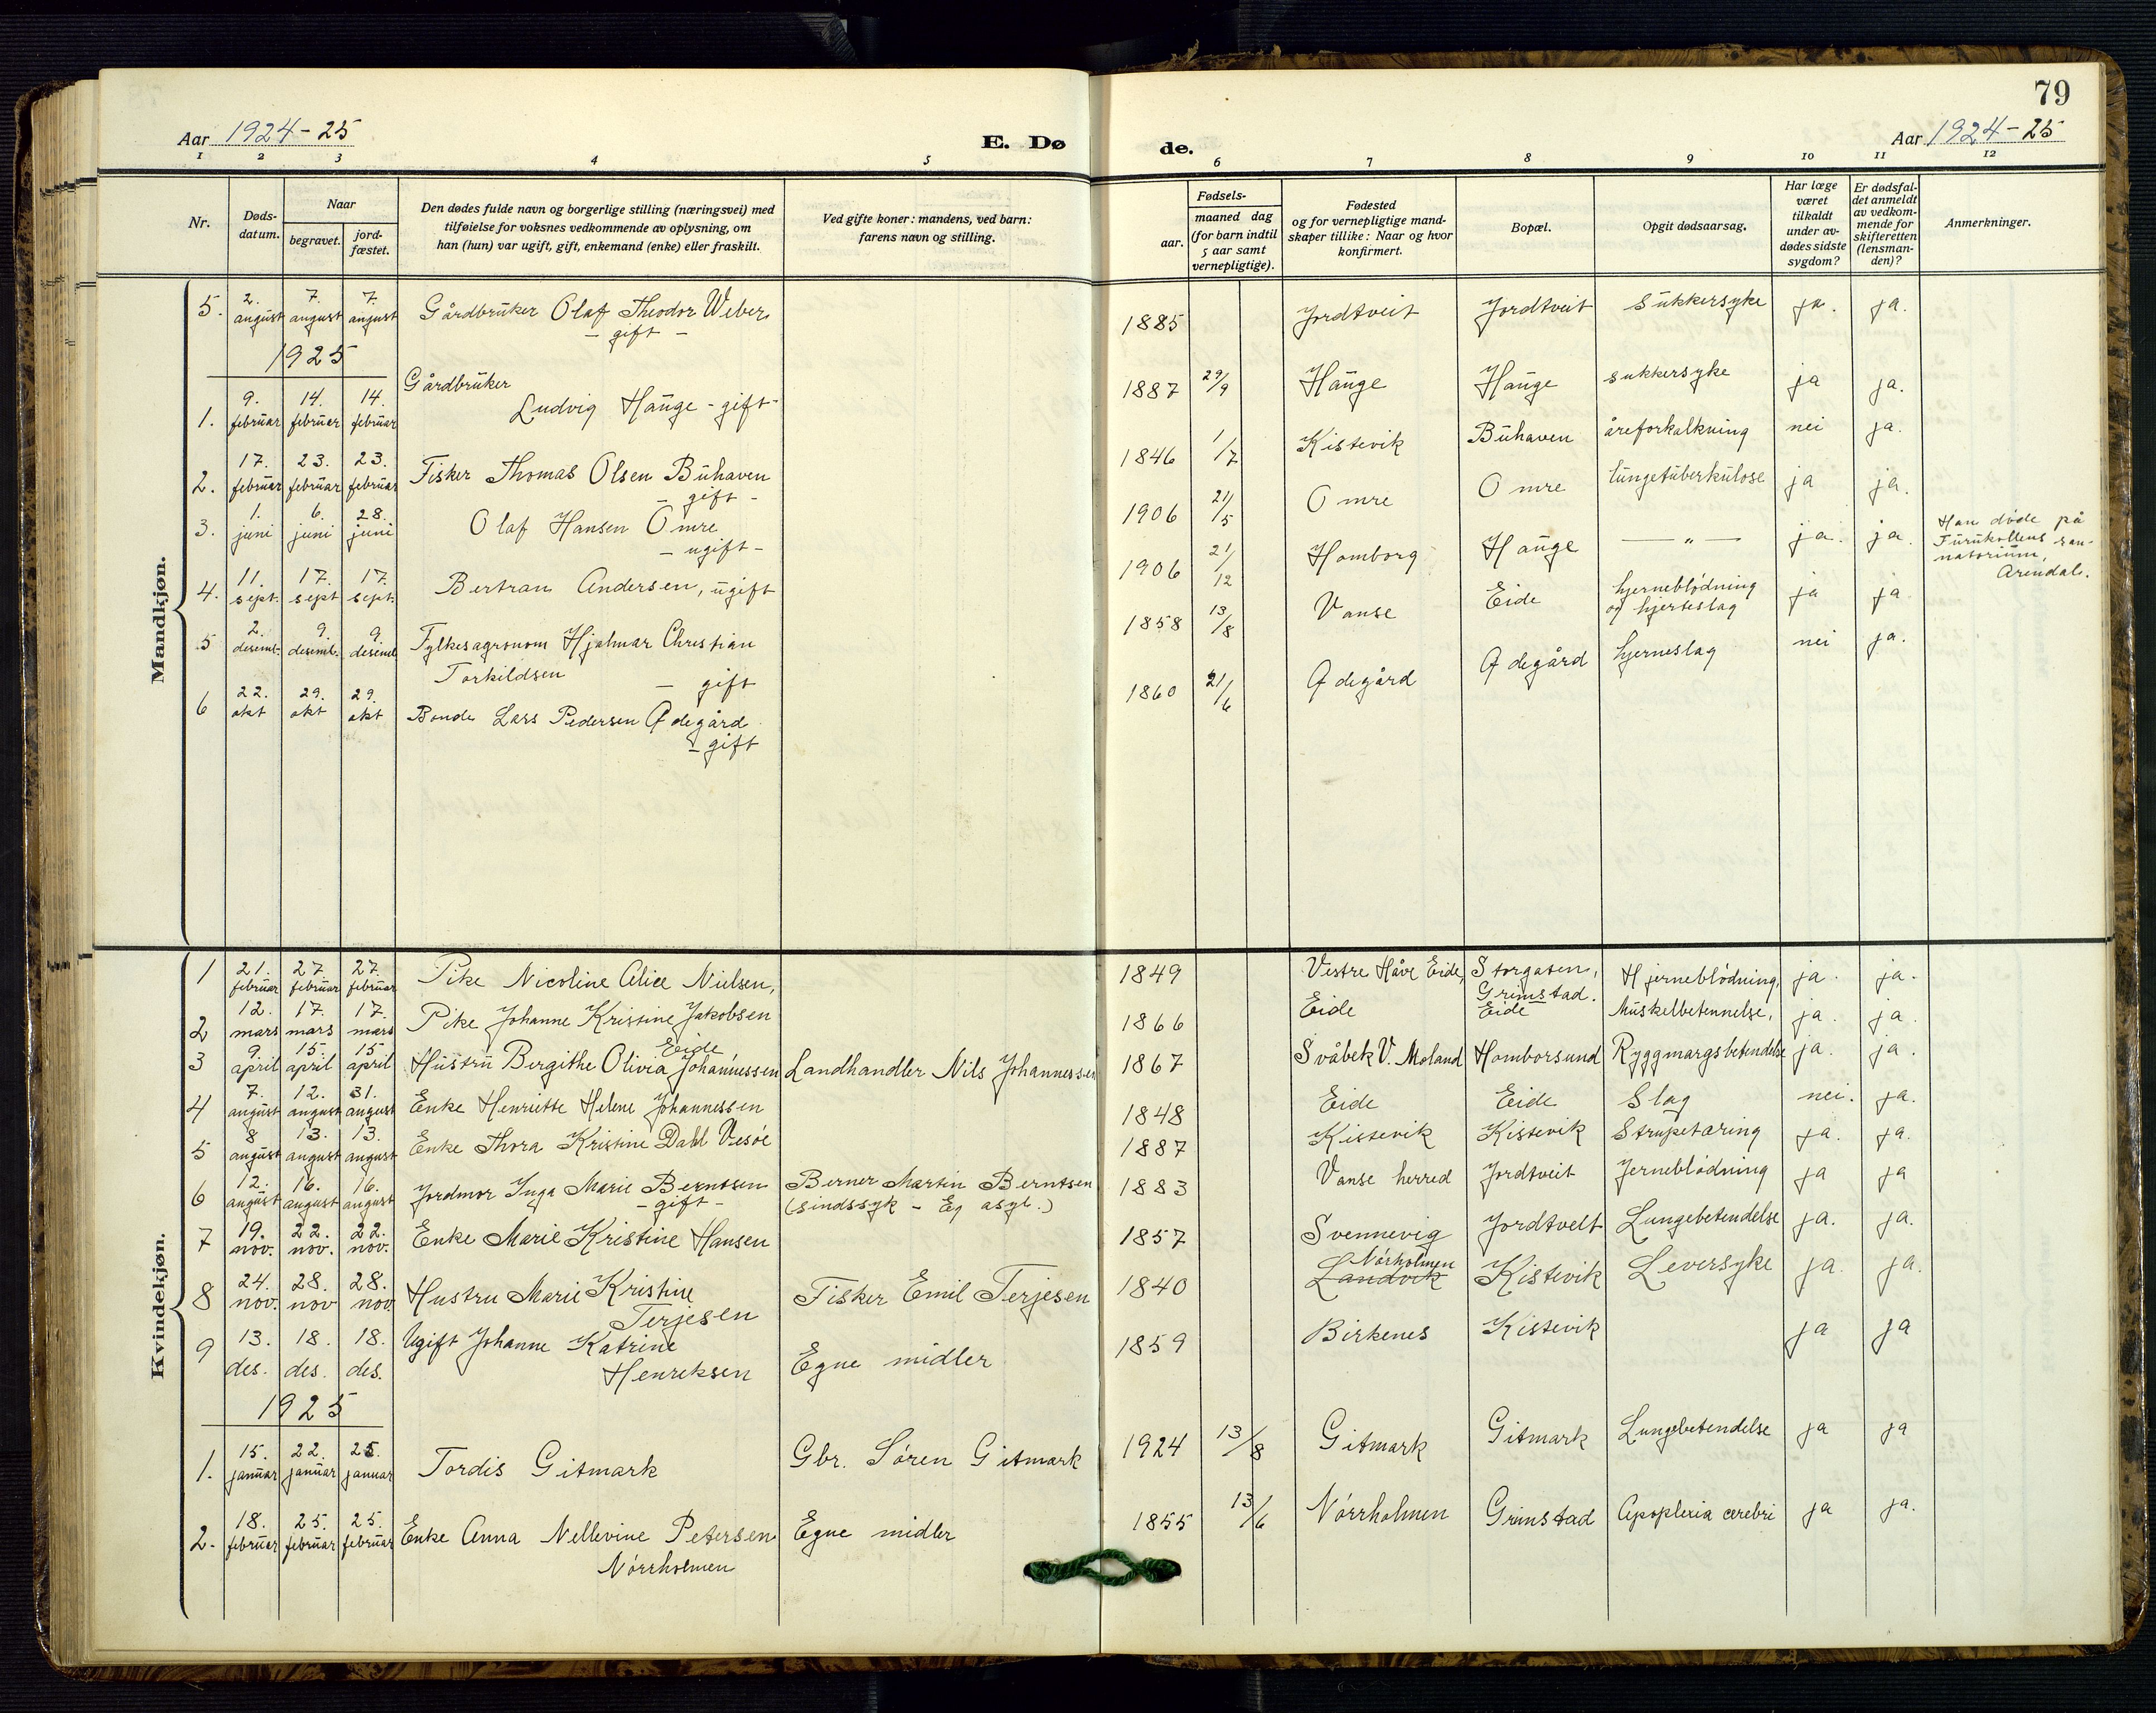 79
Aar 1924-25
E. Dø
de.
Aar 1924-25
1 2 3 4 5 6 7 8 9 10 11 12
Nr.
Døds-
datum.
Naar
begravet.
jord-
fæstet.
Den dødes fulde navn og borgerlige stilling (næringsvei) med
tilføielse for voksnes vedkommende av oplysning, om
han (hun) var ugift, gift, enkemand (enke) eller fraskilt.
Ved gifte koner: mandens, ved barn:
farens navn og stilling.
aar.
Fødsels-
maaned dag
(for barn indtil
5 aar samt
vernepligtige).
Fødested
og for vernepligtige mand-
skaper tillike: Naar og hvor
konfirmert.
Bopæl.
Opgit dødsaarsag.
Har læge
været
tilkaldt
under av-
dødes sidste
sygdom?
Er dødsfal-
det anmeldt
av vedkom-
mende for
skifteretten
(lensman-
den)?
Anmerkninger.
Mandkjøn.
5. 2. august 7. august 7. august Gårdbruker Olaf Theodor Weber 1885 Jordtveit Jordtveit sukkersyke ja. ja.
- gift -
1925
Gårdbruker
1. 9. februar 14. februar 14. februar Ludvig Hauge - gift - 1887 29/9 Hauge Hauge sukkersyke ja ja.
2. 17. februar 23. februar 23. februar Fisker Thomas Olsen Buhaven 1846 1/7 Kistevik Buhaven åreforkalkning nei ja.
- gift -
3. 1. juni 6. juni 28. juni Olaf Hansen Omre 1906 21/5 Omre Omre lungetuberkulose ja ja.
- ugift -
4. 11. sept. 17. sept 17. sept. Bertran Andersen, ugift 1906 21/12 Homborg Hauge — „ — ja. ja.
Han døde på
Furukollens san-
natorium,
Arendal.
5 2. desemb. 9. desemb. 9. desemb Fylkesagronom Hjalmar Christian 1858 13/8 Vanse Eide hjerneblødning ja ja
og hjerteslag
Torkildsen - gift
6 22. okt 29. okt 29. okt Bonde Lars Pedersen Ødegård 1860 21/6 Ødegård Ødegård hjerneslag nei ja.
- gift
Kvindekjøn.
1 21. februar 27. februar 27. februar Pike Nicoline Alice Nielsen, 1849 Vestre Håve Eide, Storgaten, Hjerneblødning, ja. ja.
Grimstad.
2 12. mars 17. mars 17. mars Pike Johanne Kristine Jakobsen 1866 Eide Eide Muskelbetennelse, ja. ja.
Eide
3 9. april 15. april 15 april Hustru Birgithe Olivia Johannessen Landhandler Nils Johannessen 1867 Svåbek V. Moland Homborsund Ryggmargsbetendelse ja. ja.
4 7. august 12. august 31. august Enke Henriette Helene Johannessen 1848 Eide Eide Slag nei. ja.
5 8 august 13. august 13. august Enke Thora Kristine Dahl Vesöe 1887 Kistevik Kistevik Strupetæring ja. ja.
6 12. august 16. august 16. august Jordmor Inga Marie Berntsen Berner Martin Berntsen 1883 Vanse herred Jordtveit Jerneblødning ja ja
- gift - (sindssyk - Eg asyl.)
7 19. nov. 22. nov. 22. nov. Enke Marie Kristine Hansen 1857 Svennevig Jordtveit Lungebetendelse ja. ja.
Nørholmen
8 24. nov. 28. nov 28. nov. Hustru Marie Kristine Fisker Emil Terjesen 1840 Landvik Kistevik Leversyke ja. ja.
Terjesen
9 13. des. 18. des. 18. des. Ugift Johanne Katrine Egne midler 1859 Birkenes Kistevik ja ja
Henreksen
1925
1. 15. januar 22. januar 25. januar Tordis Gitmark Gbr. Søren Gitmark 1924 13/8 Gitmark Gitmark Lungebetendelse ja ja
2. 18. februar 25. februar 25. februar Enke Anna Nellevine Petersen Egne midler 1855 13/6 Nørrholmen Grimstad Apoplexia cerebri ja ja.
Nørrholmen